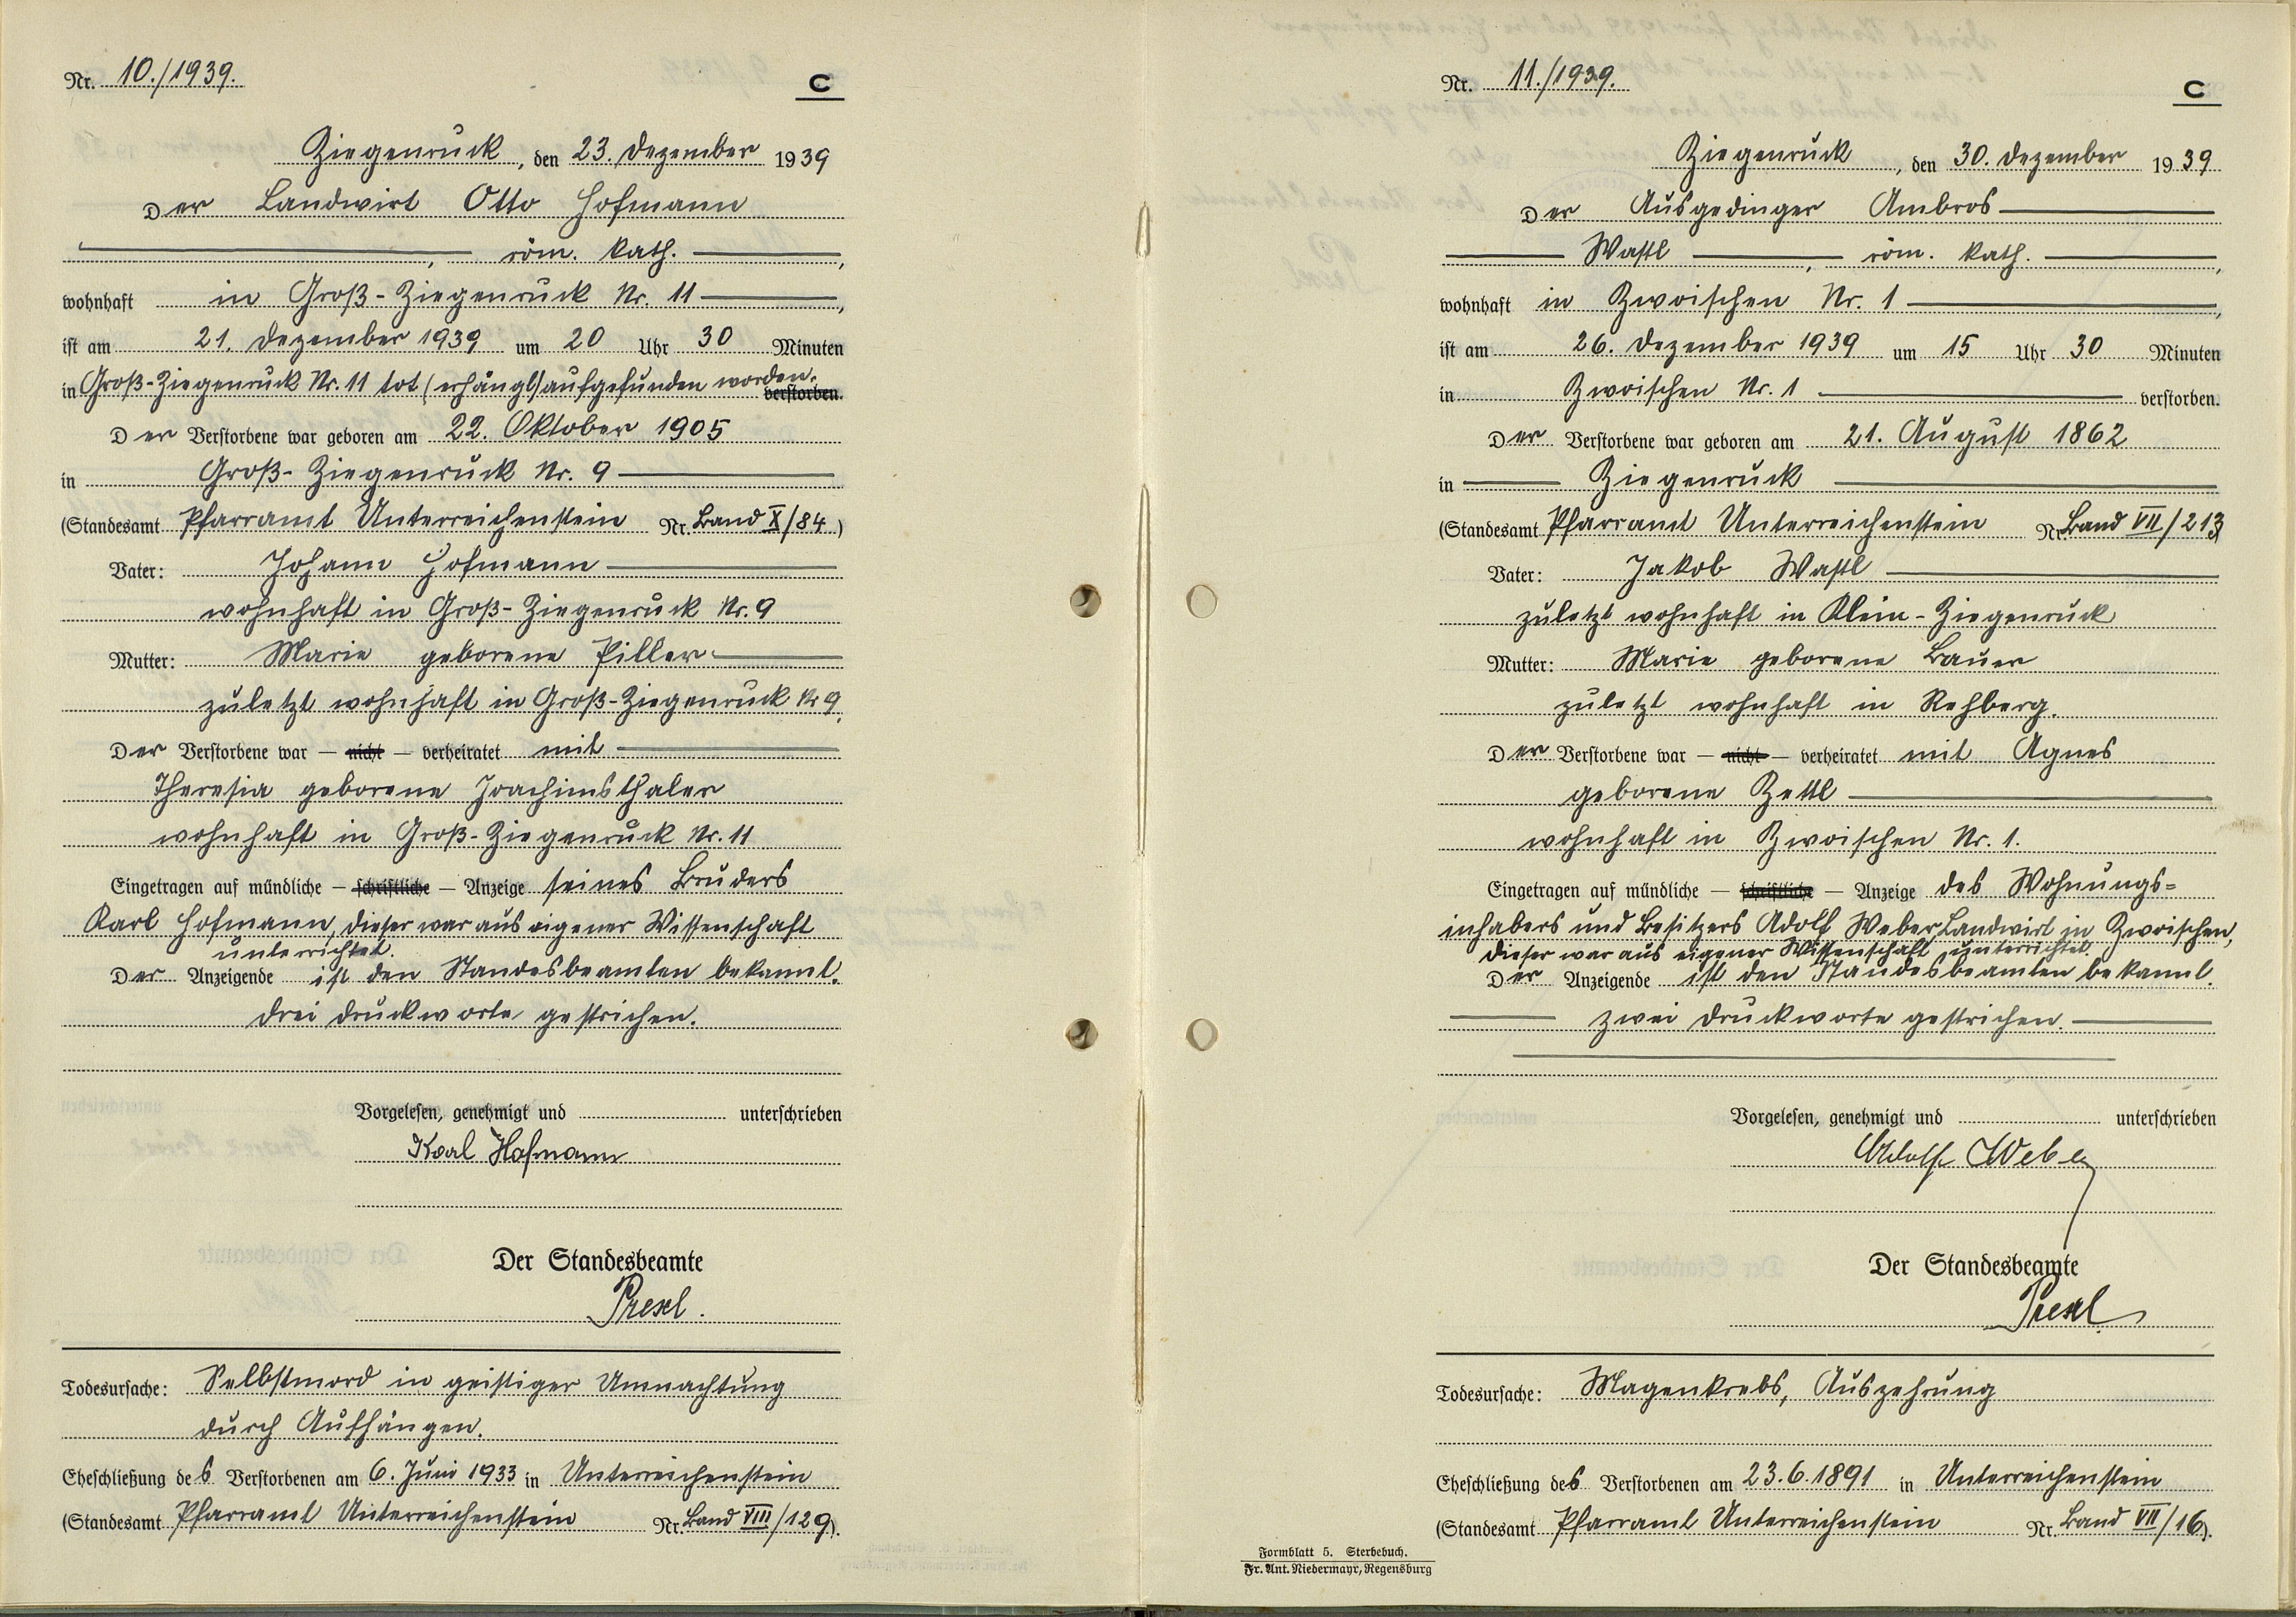 Nr. 10./1939.
C
Ziegenruck, den 23. Dezember 1939
Der Landwirt Otto Hofmann
, röm. kath. ,
wohnhaft in Groß-Ziegenruck Nr. 11 ,
ist am 21. Dezember 1939 um 20 Uhr 30 Minuten
in Groß-Ziegenruck Nr. 11 tot (erhängt) aufgefunden worden. verstorben.
Der Verstorbene war geboren am 22. Oktober 1905
in Groß-Ziegenruck Nr. 9
(Standesamt Pfarramt Unterreichenstein Nr. Band X/84)
Vater: Johann Hofmann
wohnhaft in Groß-Ziegenruck Nr. 9
Mutter: Marie geborene Piller
zuletzt wohnhaft in Groß-Ziegenruck Nr 9.
Der Verstorbene war — nicht — verheiratet mit
Theresia geborene Joachimsthaler
wohnhaft in Groß-Ziegenruck Nr. 11
Eingetragen auf mündliche — schriftliche — Anzeige seines Bruders
Karl Hofmann, dieser war aus eigener Wissenschaft
unterrichtet.
Der Anzeigende ist den Standesbeamten bekannt.
Drei Druckworte gestrichen.
Vorgelesen, genehmigt und unterschrieben
Karl Hofmann
Der Standesbeamte
Presl.
Todesursache: Selbstmord in geistiger Umnachtung
durch Aufhängen.
Eheschließung des Verstorbenen am 6. Juni 1933 in Unterreichenstein
(Standesamt Pfarramt Unterreichenstein Nr. Band VIII/129).
Nr. 11./1939.
C
Ziegenruck, den 30. Dezember 1939
Der Ausgedinger Ambros
Wastl , röm. kath. ,
wohnhaft in Zwoischen Nr. 1 ,
ist am 26. Dezember 1939 um 15 Uhr 30 Minuten
in Zwoischen Nr. 1 verstorben.
Der Verstorbene war geboren am 21. August 1862
in Ziegenruck
(Standesamt Pfarramt Unterreichenstein Nr. Band VII/213)
Vater: Jakob Wastl
zuletzt wohnhaft in Klein-Ziegenruck
Mutter: Marie geborene Bauer
zuletzt wohnhaft in Rehberg.
Der Verstorbene war — nicht — verheiratet mit Agnes
geborene Zettl
wohnhaft in Zwoischen Nr. 1.
Eingetragen auf mündliche — schriftliche — Anzeige des Wohnungs=
inhabers und Besitzers Adolf Weber, Landwirt in Zwoischen,
dieser war aus eigener Wissenschaft unterrichtet.
Der Anzeigende ist den Standesbeamten bekannt.
Zwei Druckworte gestrichen.
Vorgelesen, genehmigt und unterschrieben
Adolf Weber
Der Standesbeamte
Presl
Todesursache: Magenkrebs, Auszehrung
Eheschließung des Verstorbenen am 23.6.1891 in Unterreichenstein
(Standesamt Pfarramt Unterreichenstein Nr. Band VII/16).
Formblatt 5. Sterbebuch.
Fr. Ant. Niedermayr, Regensburg